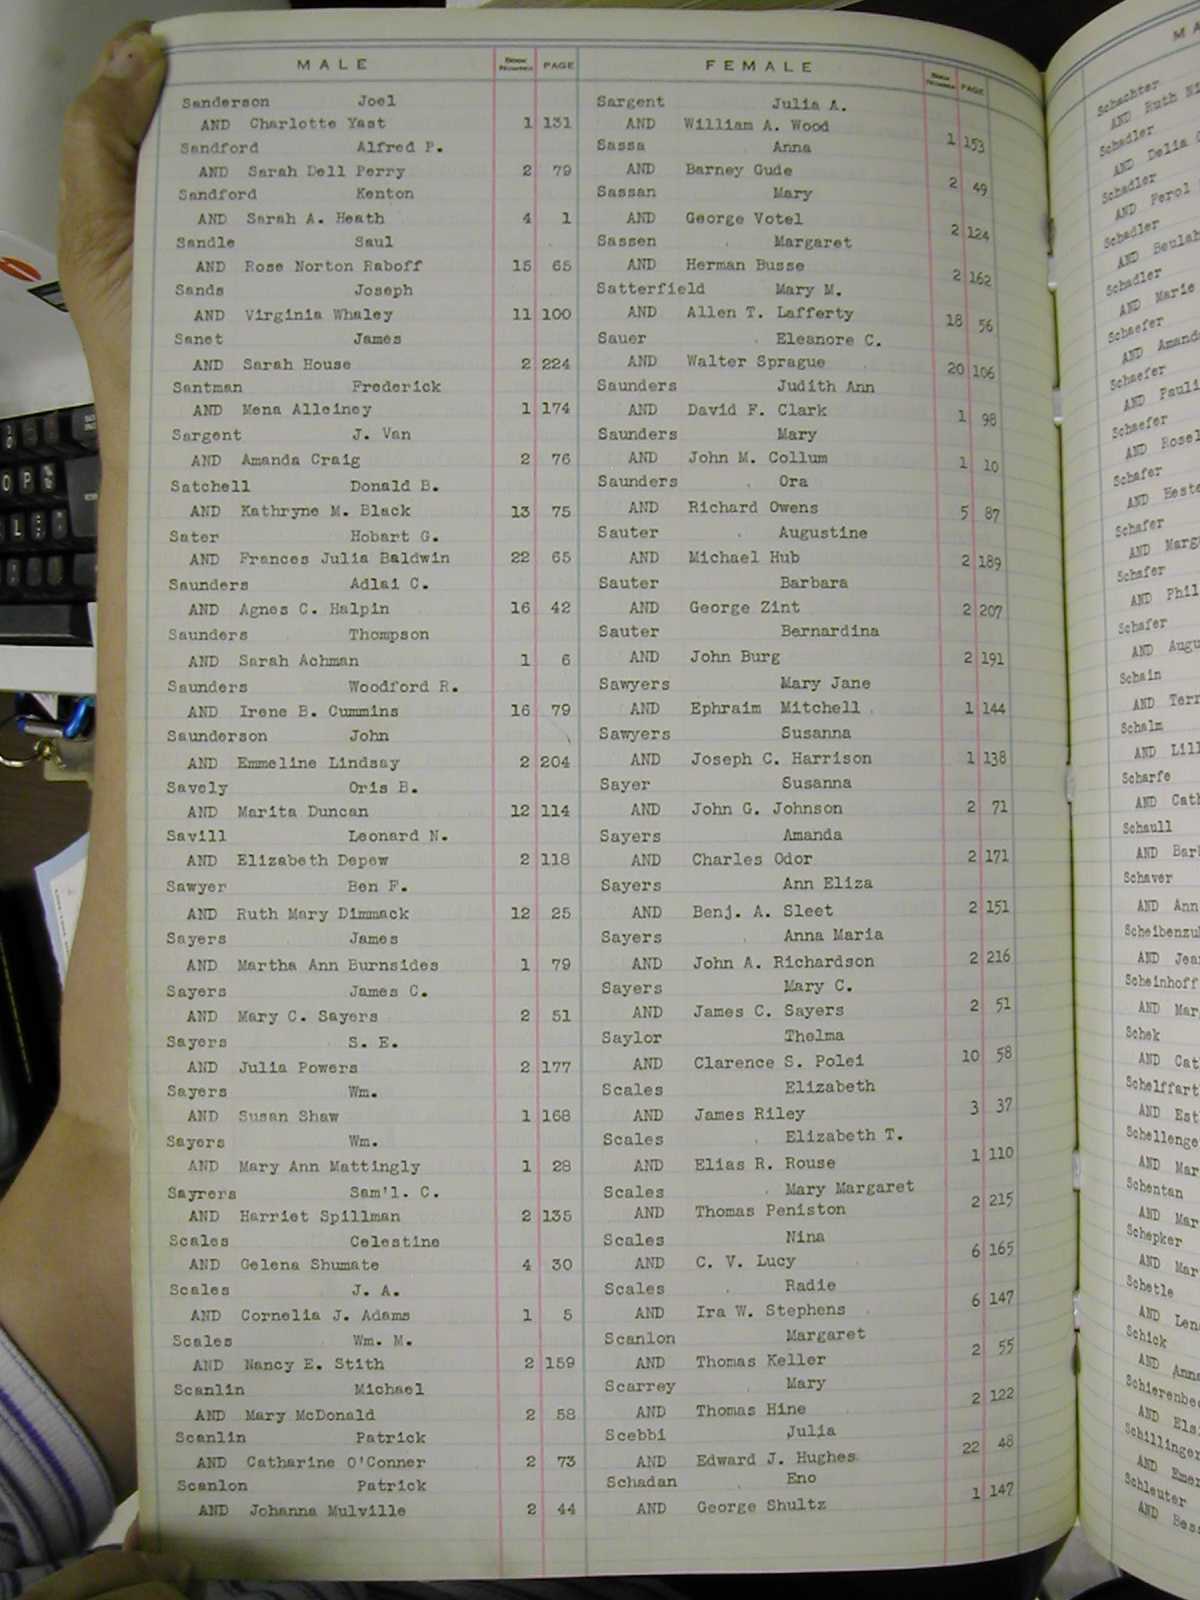 MALE BOOK NUMBER PAGE
Sanderson Joel
AND Charlotte Yast 1 131
Sandford Alfred P.
AND Sarah Dell Perry 2 79
Sandford Kenton
AND Sarah A. Heath 4 1
Sandle Saul
AND Rose Norton Raboff 15 65
Sands Joseph
AND Virginia Whaley 11 100
Sanet James
AND Sarah House 2 224
Santman Frederick
AND Mena Alleiney 1 174
Sargent J. Van
AND Amanda Craig 2 76
Satchell Donald B.
AND Kathryne M. Black 13 75
Sater Hobart G.
AND Frances Julia Baldwin 22 65
Saunders Adlai C.
AND Agnes C. Halpin 16 42
Saunders Thompson
AND Sarah Achman 1 6
Saunders Woodford R.
AND Irene B. Cummins 16 79
Saunderson John
AND Emmeline Lindsay 2 204
Savely Oris B.
AND Marita Duncan 12 114
Savill Leonard N.
AND Elizabeth Depew 2 118
Sawyer Ben F.
AND Ruth Mary Dimmack 12 25
Sayers James
AND Martha Ann Burnsides 1 79
Sayers James C.
AND Mary C. Sayers 2 51
Sayers S. E.
AND Julia Powers 2 177
Sayers Wm.
AND Susan Shaw 1 168
Sayers Wm.
AND Mary Ann Mattingly 1 28
Sayrers Sam'l. C.
AND Harriet Spillman 2 135
Scales Celestine
AND Gelena Shumate 4 30
Scales J. A.
AND Cornelia J. Adams 1 5
Scales Wm. M.
AND Nancy E. Stith 2 159
Scanlin Michael
AND Mary McDonald 2 58
Scanlin Patrick
AND Catharine O'Conner 2 73
Scanlon Patrick
AND Johanna Mulville 2 44
FEMALE BOOK NUMBER PAGE
Sargent Julia A.
AND William A. Wood 1 153
Sassa Anna
AND Barney Gude 2 49
Sassan Mary
AND George Votel 2 124
Sassen Margaret
AND Herman Busse 2 162
Satterfield Mary M.
AND Allen T. Lafferty 18 56
Sauer Eleanore C.
AND Walter Sprague 20 106
Saunders Judith Ann
AND David F. Clark 1 98
Saunders Mary
AND John M. Collum 1 10
Saunders Ora
AND Richard Owens 5 87
Sauter Augustine
AND Michael Hub 2 189
Sauter Barbara
AND George Zint 2 207
Sauter Bernardina
AND John Burg 2 191
Sawyers Mary Jane
AND Ephraim Mitchell 1 144
Sawyers Susanna
AND Joseph C. Harrison 1 138
Sayer Susanna
AND John G. Johnson 2 71
Sayers Amanda
AND Charles Odor 2 171
Sayers Ann Eliza
AND Benj. A. Sleet 2 151
Sayers Anna Maria
AND John A. Richardson 2 216
Sayers Mary C.
AND James C. Sayers 2 51
Saylor Thelma
AND Clarence S. Polei 10 58
Scales Elizabeth
AND James Riley 3 37
Scales Elizabeth T.
AND Elias R. Rouse 1 110
Scales Mary Margaret
AND Thomas Peniston 2 215
Scales Nina
AND C. V. Lucy 6 165
Scales Radie
AND Ira W. Stephens 6 147
Scanlon Margaret
AND Thomas Keller 2 55
Scarrey Mary
AND Thomas Hine 2 122
Scebbi Julia
AND Edward J. Hughes 22 48
Schadan Eno
AND George Shultz 1 147
MA
Schachter
AND Ruth Ni
Schadler
AND Delia
Schadler
AND Ferol
Schadler
AND Beulah
Schadler
AND Marie
Schaefer
AND Amanda
Schaefer
AND Pauli
Schaefer
AND Rosel
Schafer
AND Heste
Schafer
AND Marg
Schafer
AND Phil
Schafer
AND Augu
Schain
AND Terr
Schalm
AND Lill
Scharfe
AND Cath
Schaull
AND Barb
Schaver
AND Ann
Scheibenzu
AND Jea
Scheinhoff
AND Mar
Schek
AND Cat
Schelffart
AND Est
Schellenge
AND Mar
Schentan
AND Mar
Schepker
AND Mar
Schetle
AND Len
Schick
AND Anna
Schierenbec
AND Els
Schillinger
AND Emer
Schleuter
AND Bess